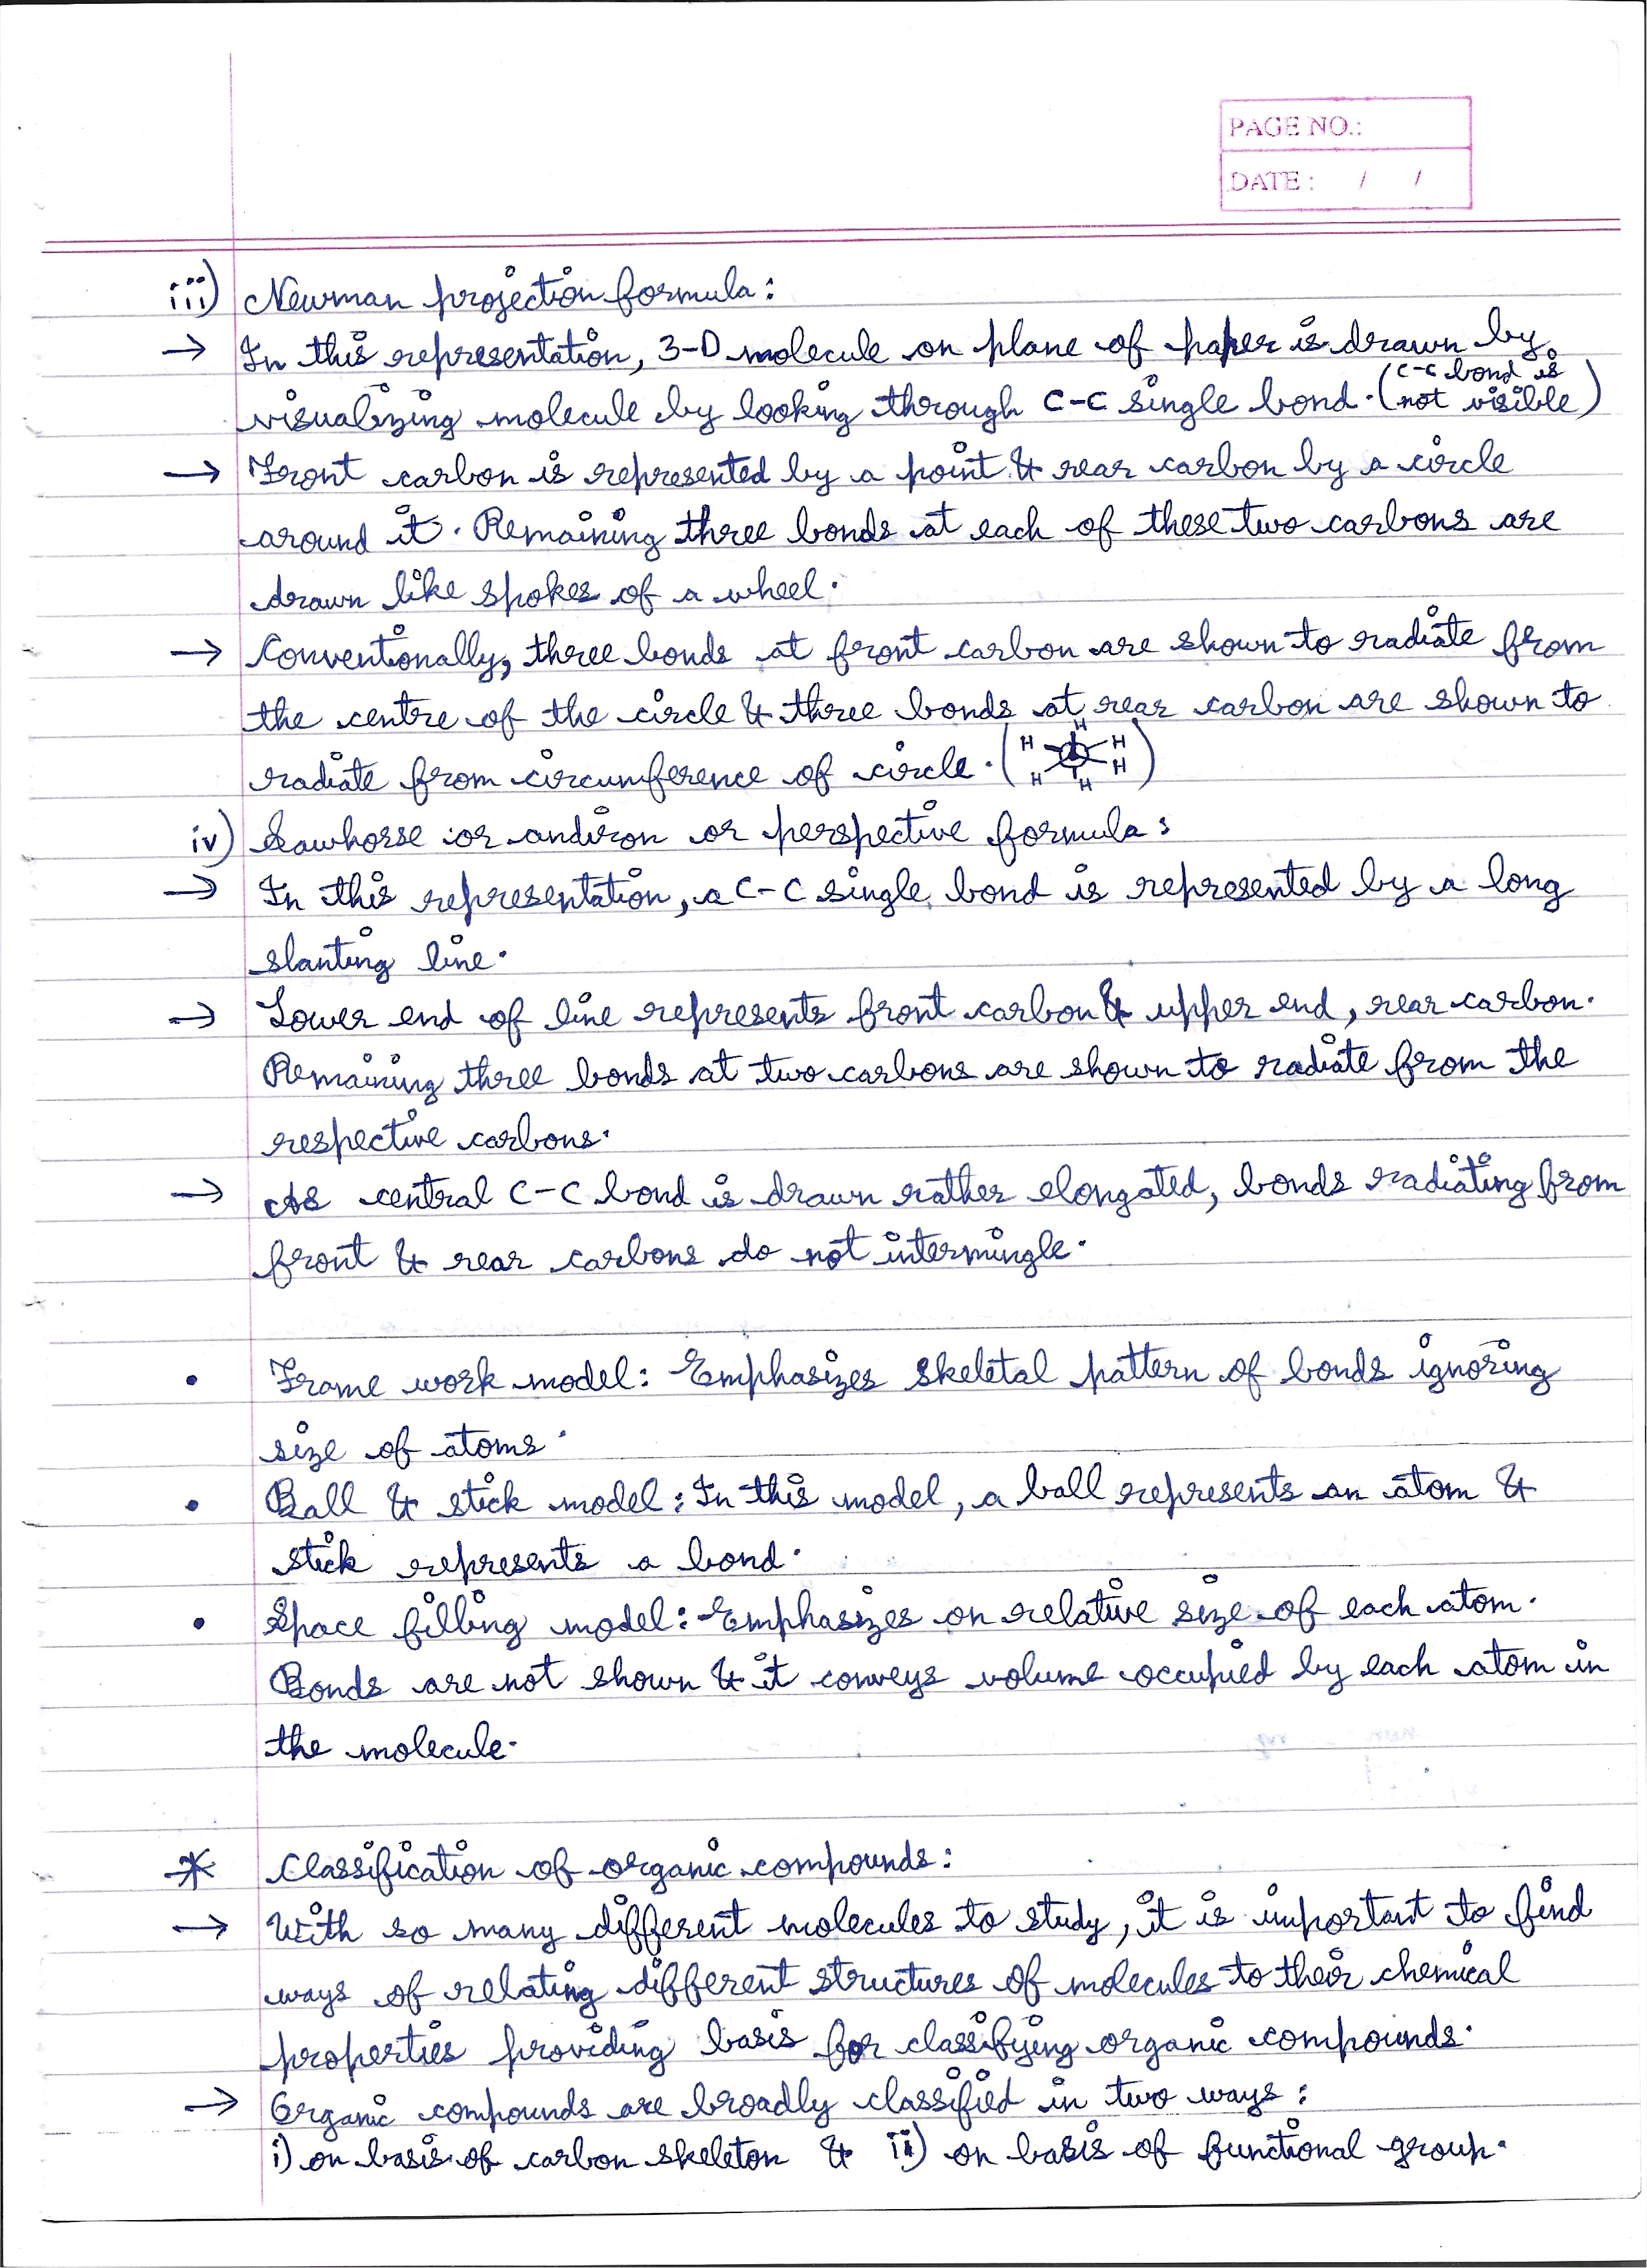 PAGE NO.:
DATE : / /
iii) Newman projection formula :
→ In this representation, 3-D molecule on plane of paper is drawn by
visualizing molecule by looking through C-C single bond. (C-C bond is not visible)
→ Front carbon is represented by a point & rear carbon by a circle
around it. Remaining three bonds at each of these two carbons are
drawn like spokes of a wheel.
→ Conventionally, three bonds at front carbon are shown to radiate from
the centre of the circle & three bonds at rear carbon are shown to
radiate from circumference of circle. (H H H H H H)
iv) Sawhorse or andiron or perspective formula :
→ In this representation, a C-C single bond is represented by a long
slanting line.
→ Lower end of line represents front carbon & upper end, rear carbon.
Remaining three bonds at two carbons are shown to radiate from the
respective carbons.
→ As central C-C bond is drawn rather elongated, bonds radiating from
front & rear carbons do not intermingle.
• Frame work model : Emphasizes skeletal pattern of bonds ignoring
size of atoms.
• Ball & stick model : In this model, a ball represents an atom &
stick represents a bond.
• Space filling model : Emphasizes on relative size of each atom.
Bonds are not shown & it conveys volume occupied by each atom in
the molecule.
* Classification of organic compounds :
→ With so many different molecules to study, it is important to find
ways of relating different structures of molecules to their chemical
properties providing basis for classifying organic compounds.
→ Organic compounds are broadly classified in two ways :
i) on basis of carbon skeleton & ii) on basis of functional group.